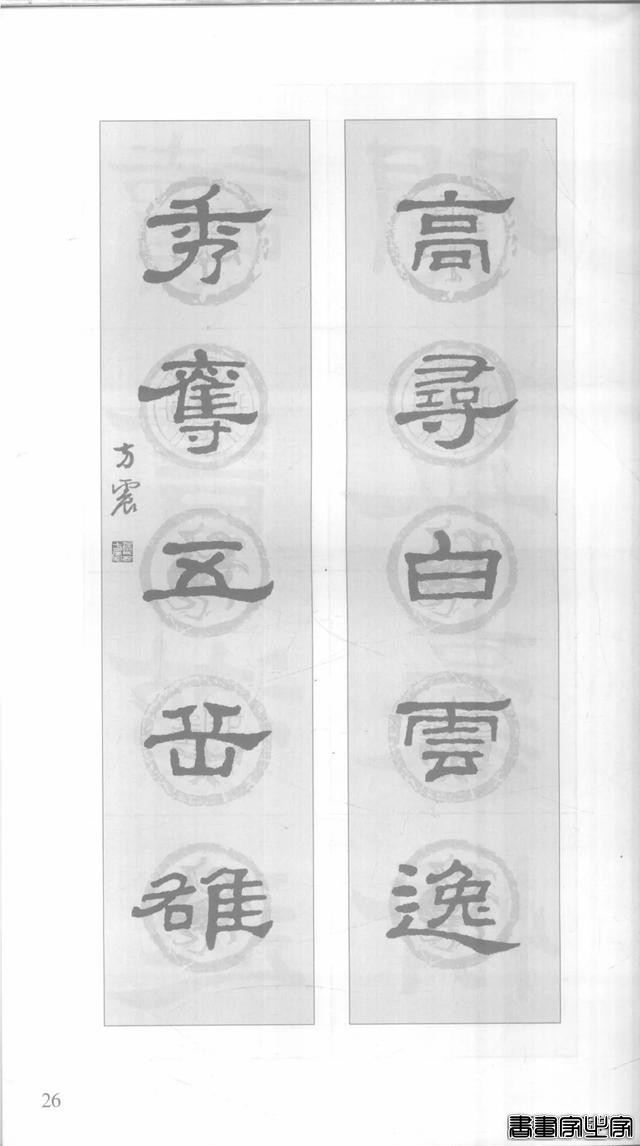 高尋白雲逸
秀奪五岳雄
方震
26
書畫家必字